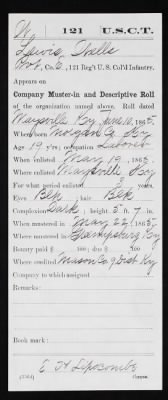 W | 121 | U.S.C.T.
Lewis, Wells
Pvt., Co. E, 121 Reg't U. S. Col'd Infantry.
Appears on
Company Muster-in and Descriptive Roll
of the organization named above. Roll dated
Maysville Ky, June 10, 1865.
Where born Morgan Co. Ky
Age 19 y'rs; occupation Laborer
When enlisted May 19, 1865.
Where enlisted Maysville Ky
For what period enlisted 3 years.
Eyes Blk; hair Blk
Complexion Dark; height 5 ft. 7 in.
When mustered in May 22, 1865.
Where mustered in Ky
Bounty paid $ 100; due $ 100
Where credited Mason Co. 9 Dist. Ky
Company to which assigned
Remarks:
Book mark:
E. H. Lipscombe
Copyist.